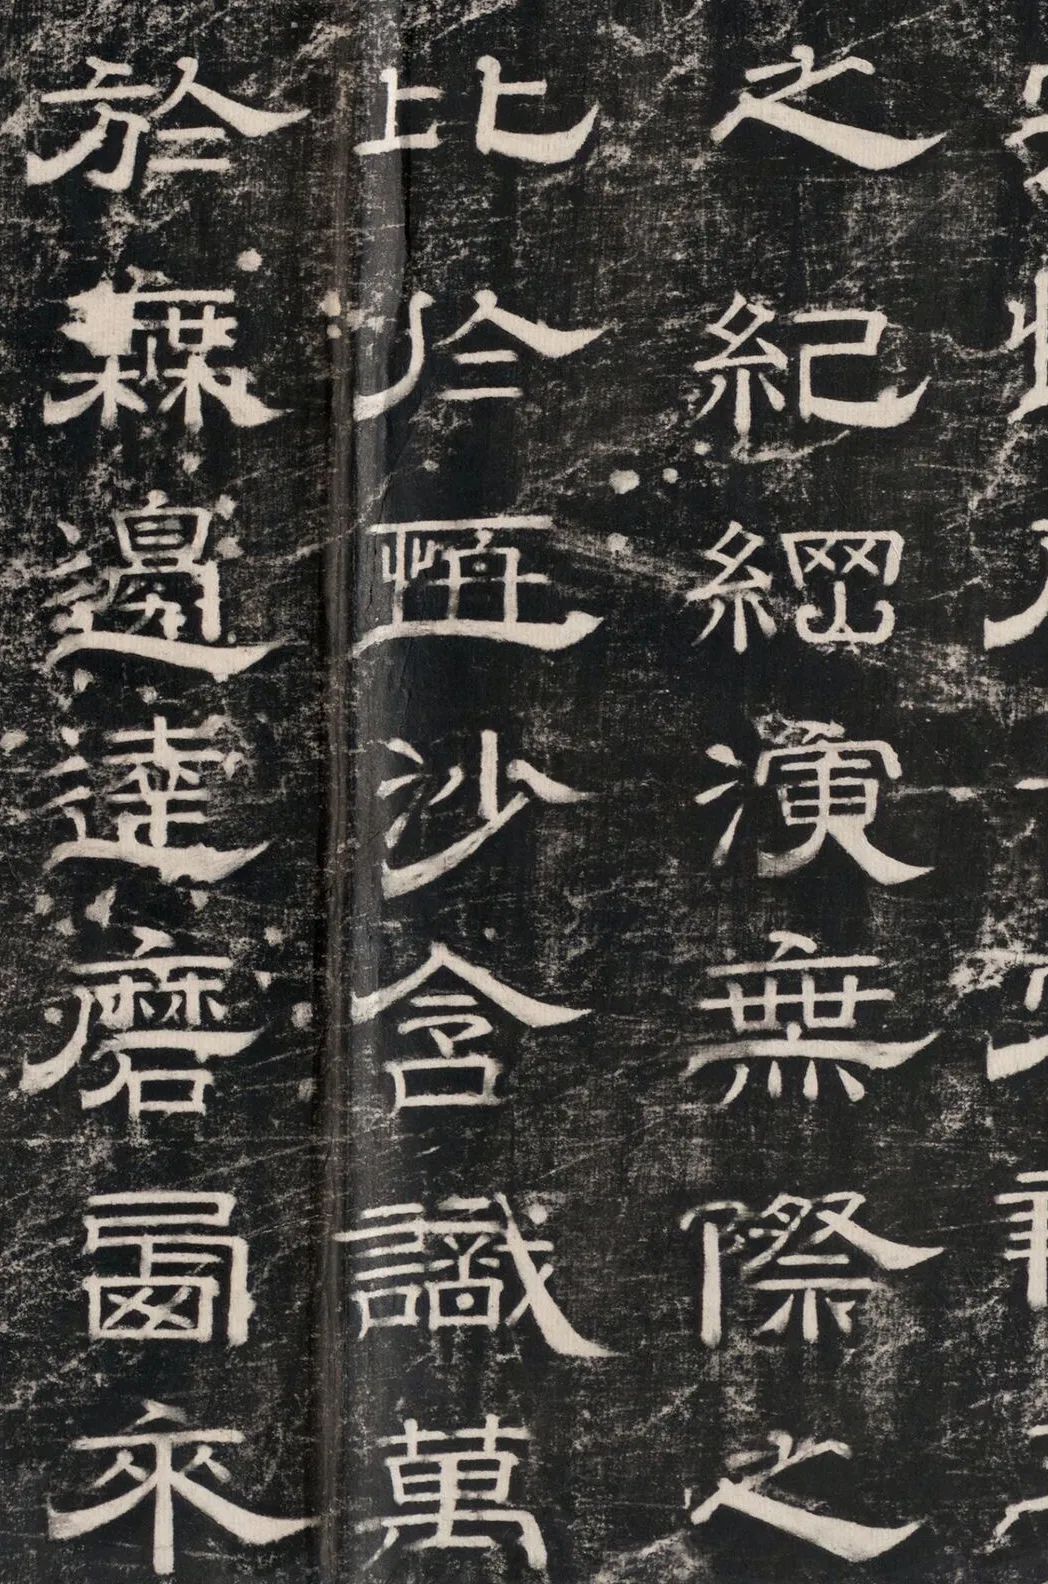 之紀綱演無際之
比於恆沙含識萬
於橆邊達磨來